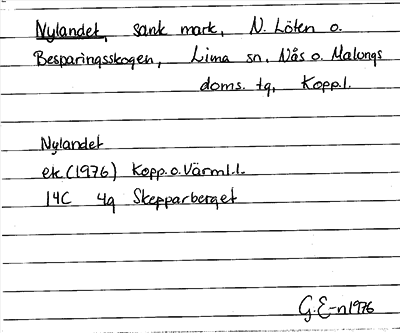 Nylandet, sank mark, N. Löten o.
Besparingsskogen, Lima sn, Nås o. Malungs
doms. tg, Kopp.l.
Nylandet
ek. (1976) Kopp. o. Värml.l.
14C 4g Skepparberget
G.E-n 1976